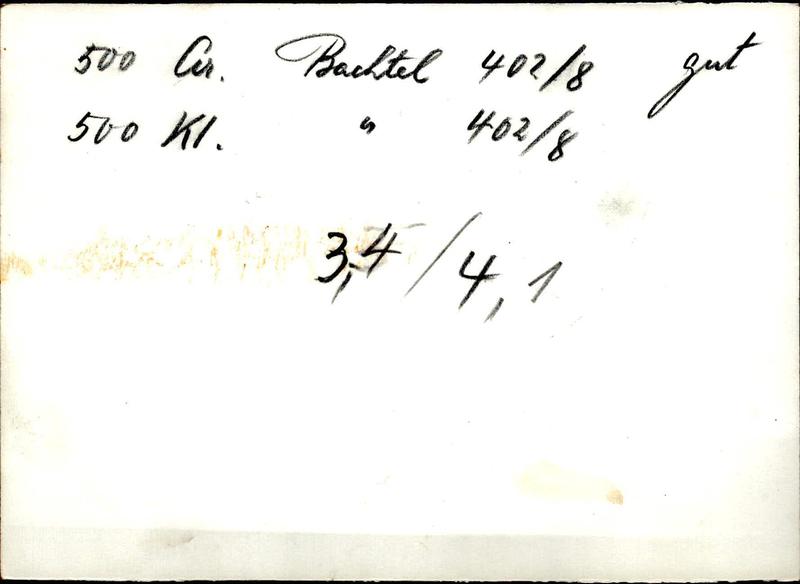 500 Gr. Bachtel 402/8 gut
500 Kl. " 402/8
3,4 / 4,1